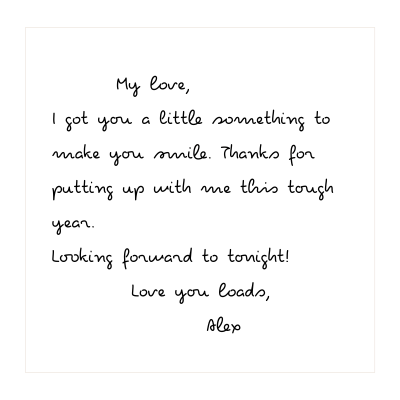 My love,
I got you a little something to
make you smile. Thanks for
putting up with me this tough
year.
Looking forward to tonight!
Love you loads,
Alex